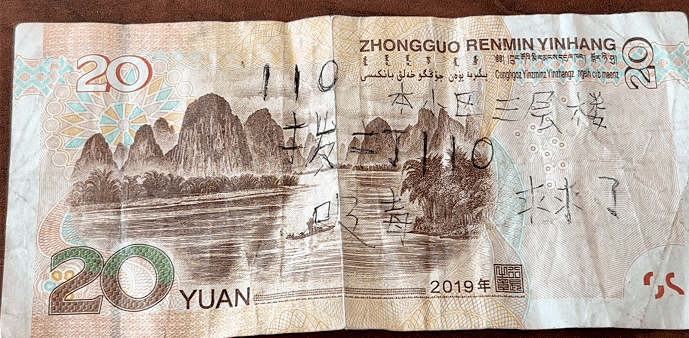 ZHONGGUO RENMIN YINHANG
20
20
جۇڭگو خەلق بانكىسى
Cunghgoz Yinzminz Yinzhangz
110
本小区三层楼
拨打110
吸毒 求求了
20 YUAN
2019年